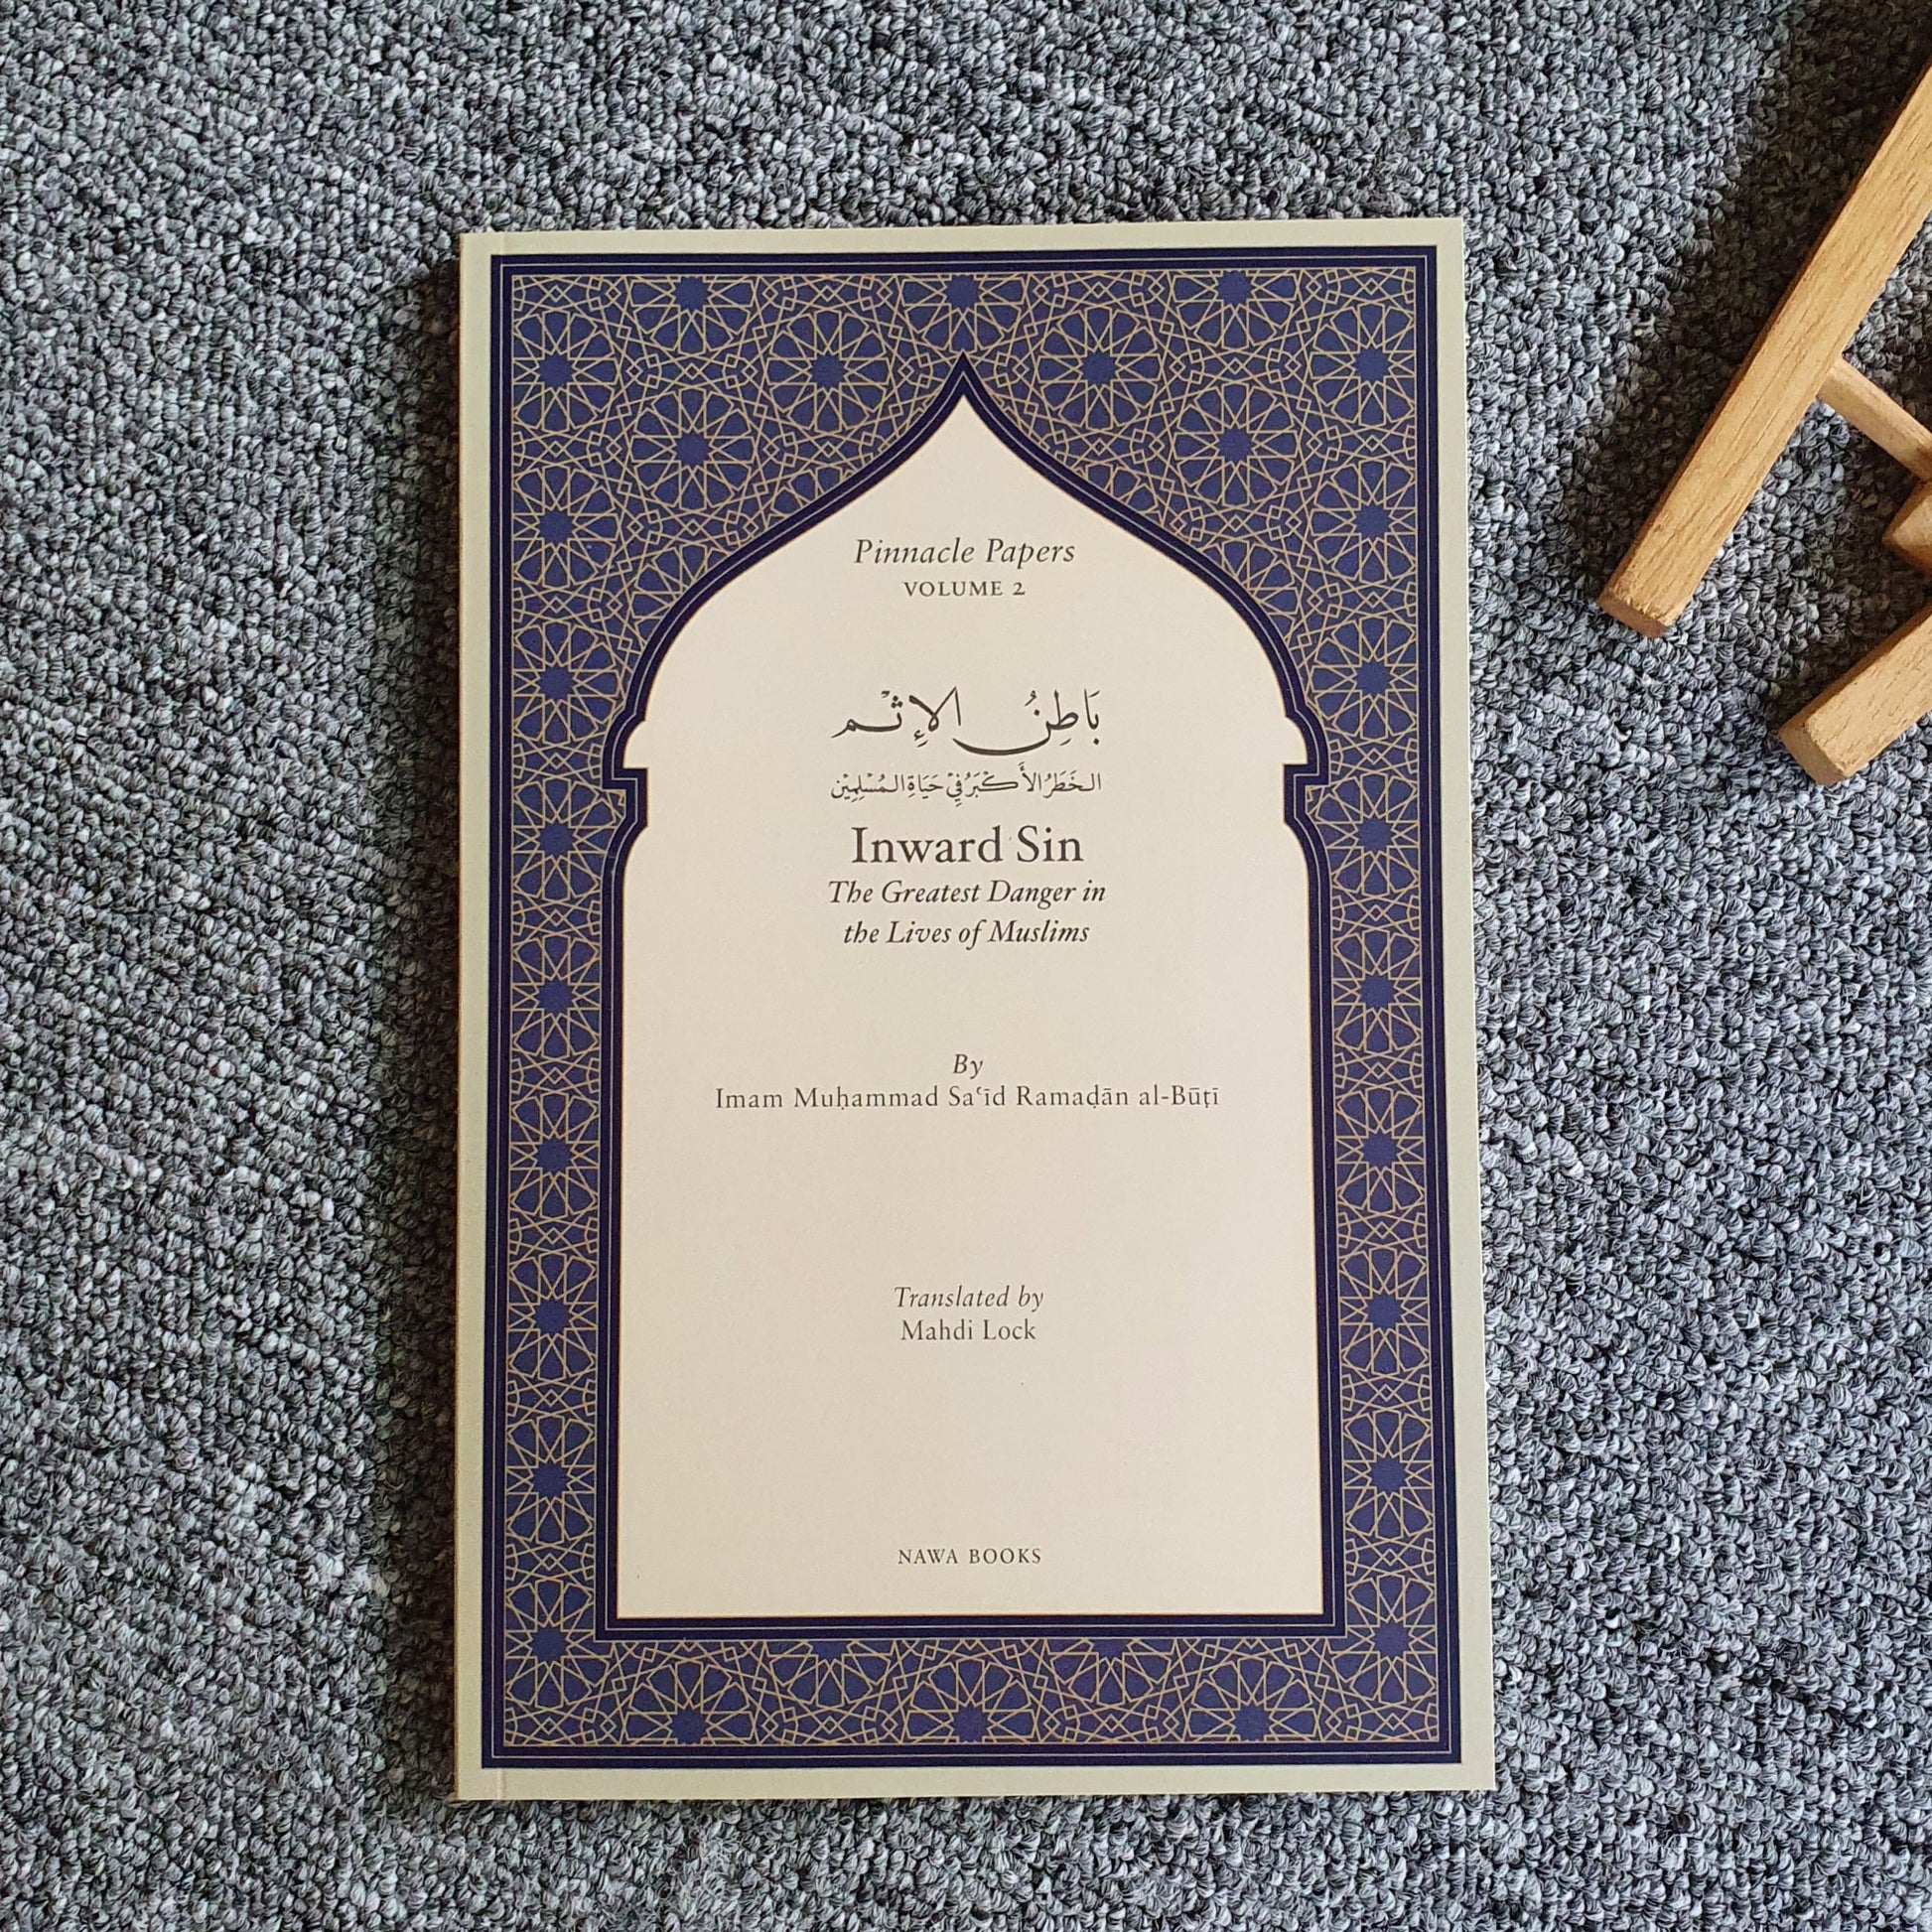 Pinnacle Papers
VOLUME 2
بَاطِنُ الإِثْم
الخَطَرُ الأَكْبَرُ فِيْ حَيَاةِ المُسْلِمِيْن
Inward Sin
The Greatest Danger in
the Lives of Muslims
By
Imam Muḥammad Saʿīd Ramaḍān al-Būṭī
Translated by
Mahdi Lock
NAWA BOOKS